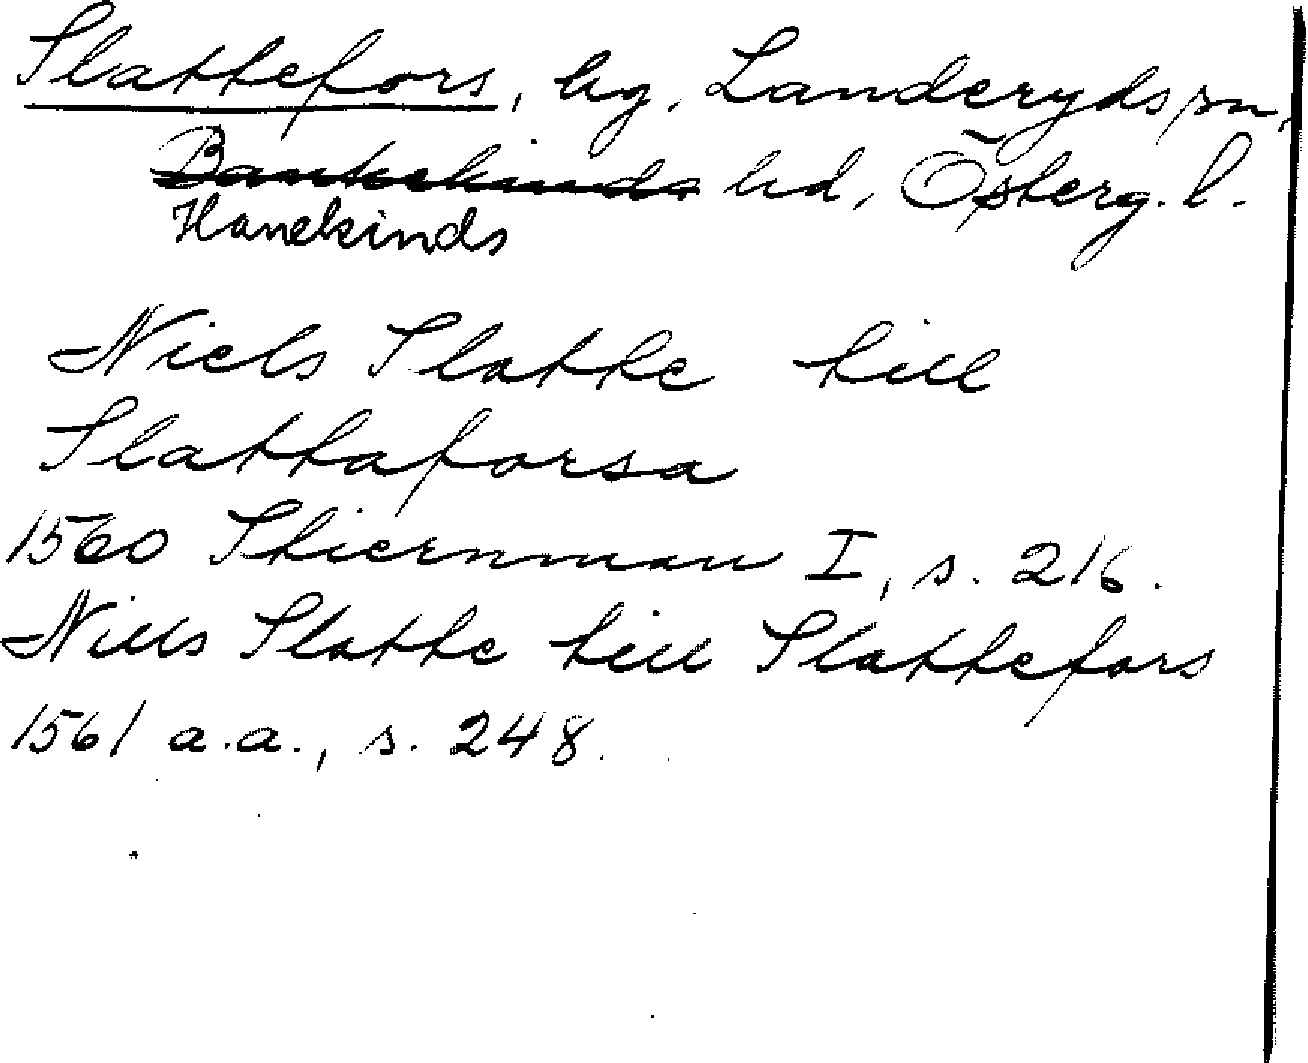 Slattefors, hg, Landeryds sn,
Bankekinds hd, Österg. l.
Hanekinds
Niels Slatte till
Slattaforsa
1560 Stiernman I, s. 216.
Nills Slatte till Slattefors
1561 a.a., s. 248.